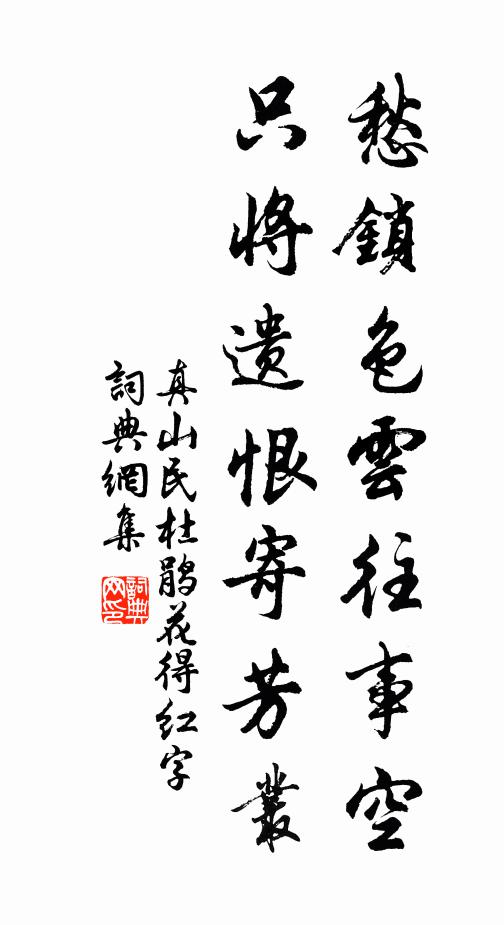 愁鎖色雲往事空
只將遺恨寄芳叢
真山民杜鵑花得红字
詞典網集
詞典网印